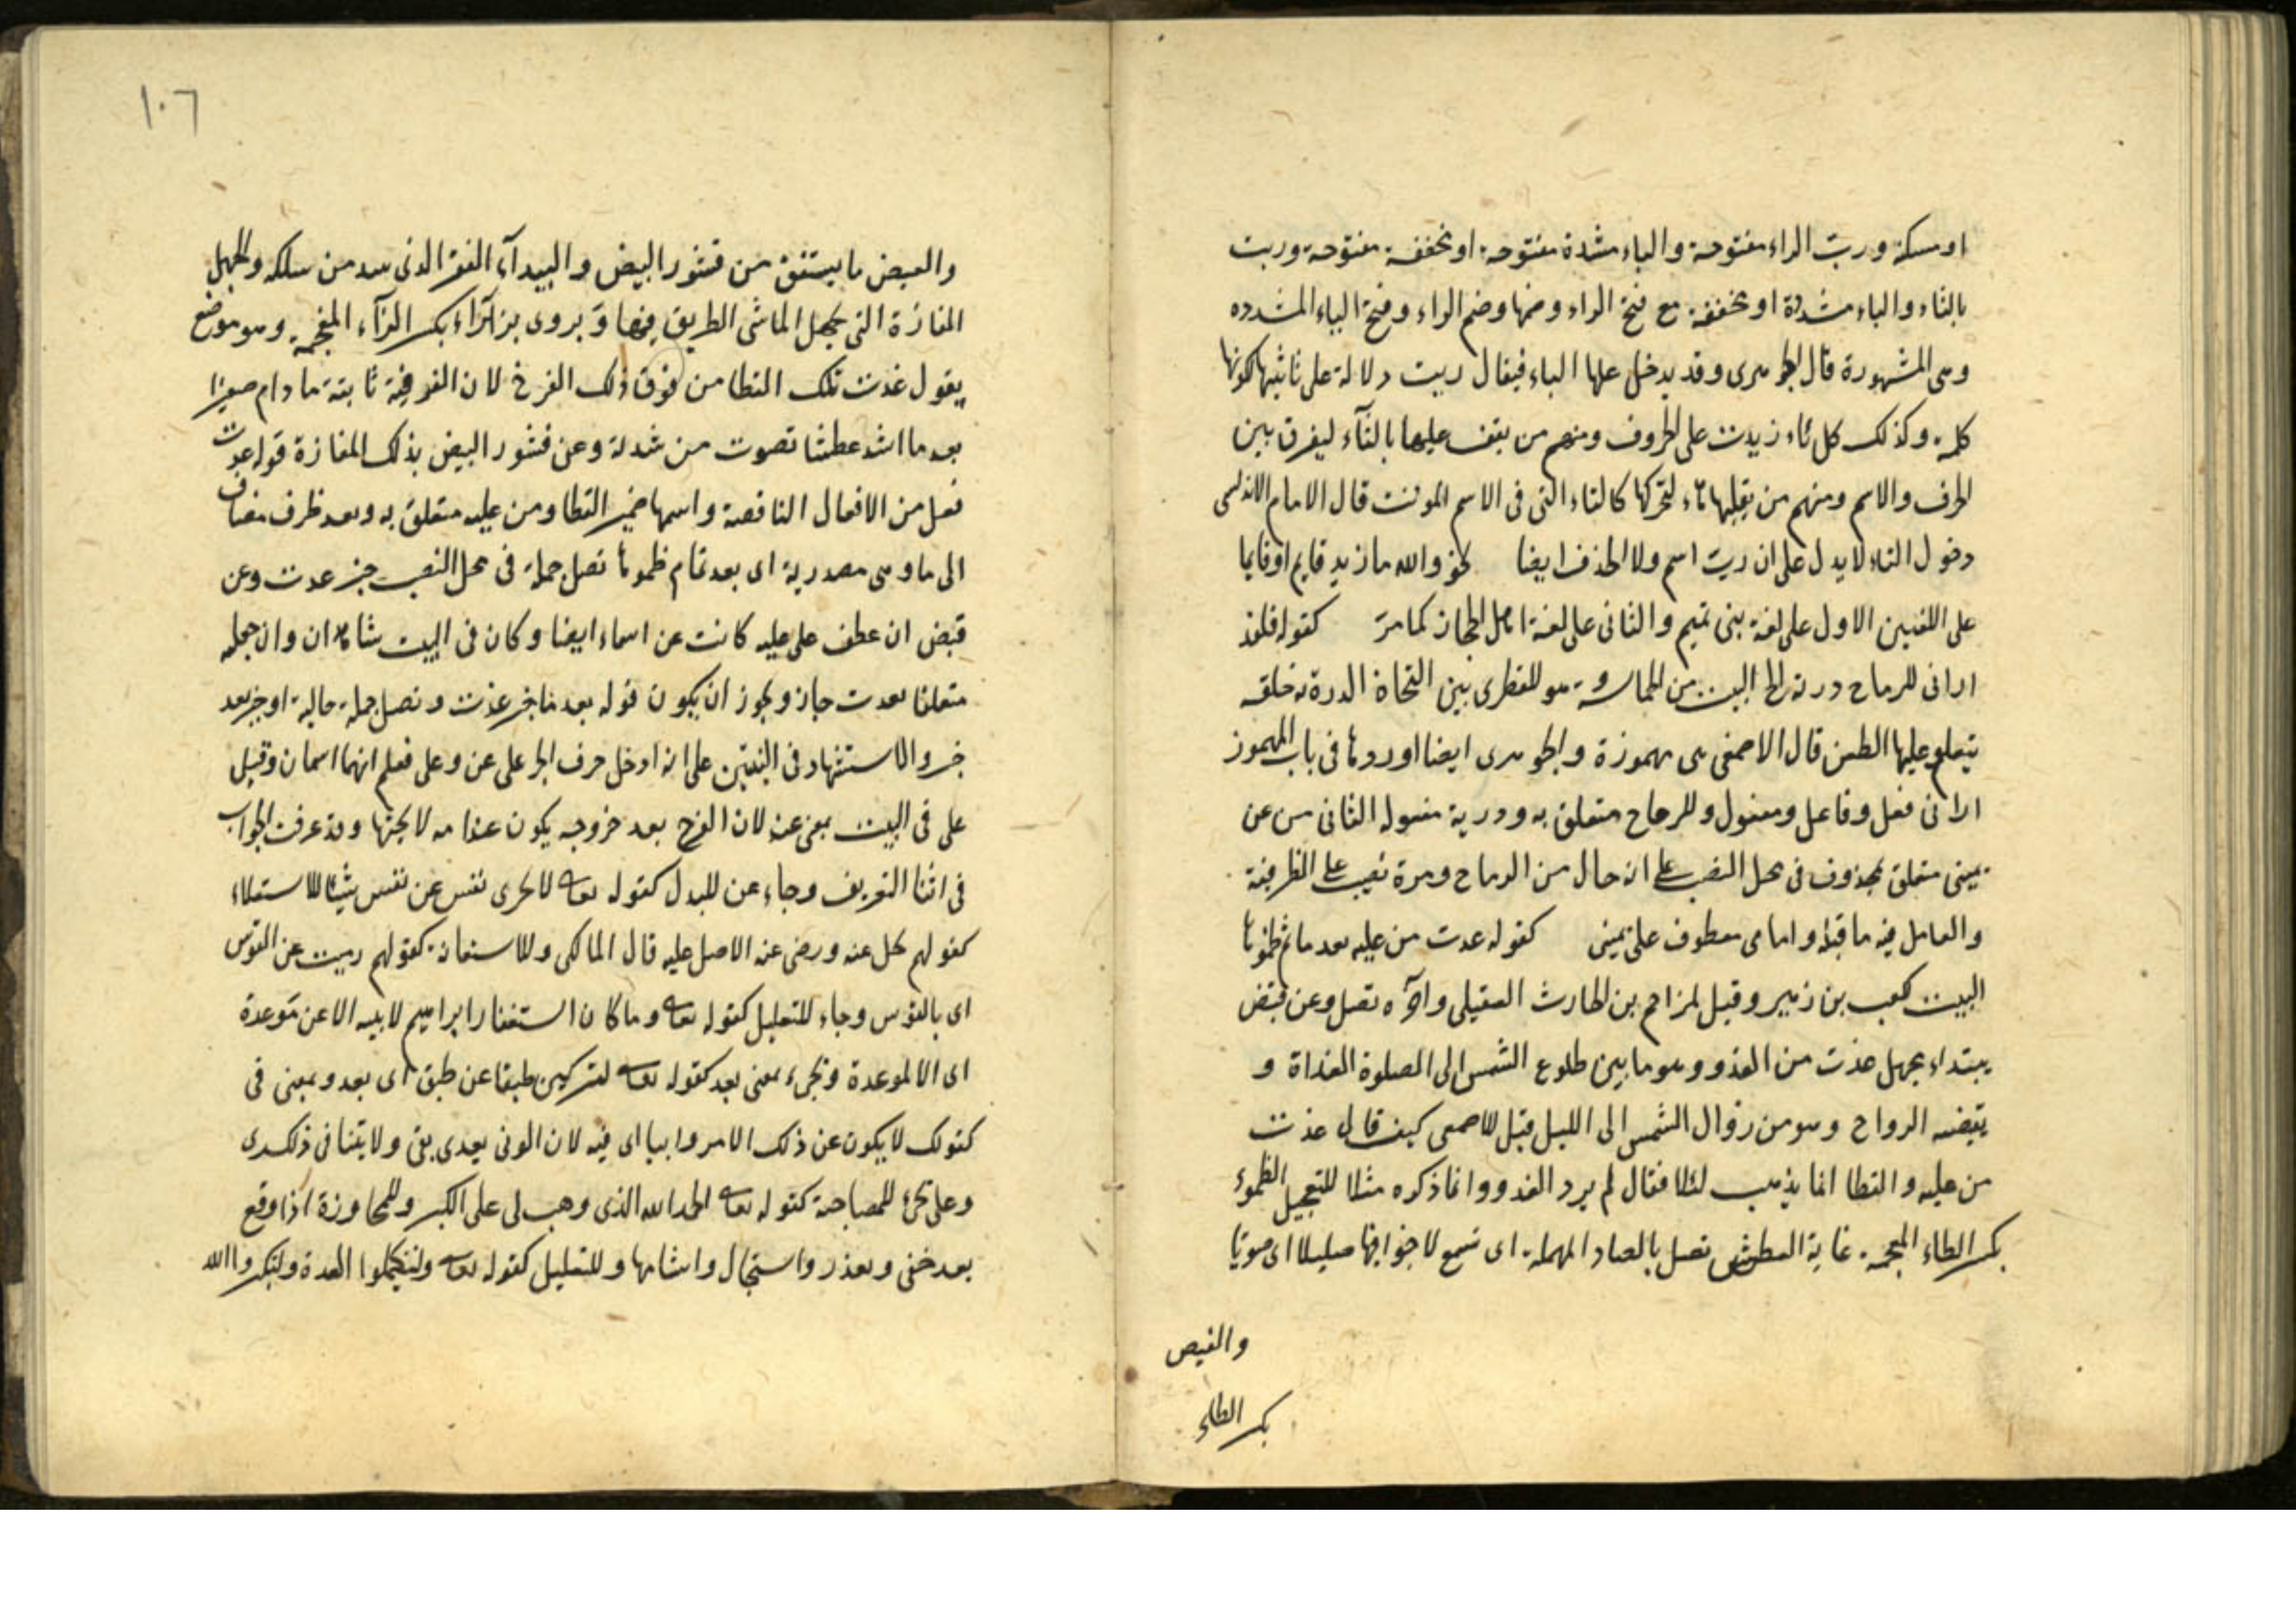 او مسكنة وربت الراء مفتوحة والباء مشددة مفتوحة او مخففة مفتوحة وربت
بالتاء والباء مشددة او مخففة مع فتح الراء وضمها وضم الراء وفتح الباء المشدده
وهى المشهورة قال الجوهرى وقد يدخل علها الباء فيقال ربت دلالة على تانيثها كونها
كلمة وكذلك كل تاء زيدت على الحروف ومنهم من يقف عليها بالتآء ليفرق بين
الحرف والاسم ومنهم من يقلبها هاء لتحركها كالتاء التى فى الاسم المونث قال الامام الاندلسى
دخول التاء لا يدل على ان ربت اسم ولا الحذف ايضا نحو والله ما زيد قايم او قايما
على اللغتين الاول على لغة بنى تميم والثانى على لغة اهل الحجاز كما مر كقوله فلقد
ارانى للرماح درية الخ البيت من الحماسة هو للقطرى بين النحاة الدرية حلقة
يتعلم عليها الطعن قال الاصمعى هى مهموزة والجوهرى ايضا اوردها فى باب المهموز
ارانى فعل وفاعل ومفعول وللرماح متعلق به ودرية مفعوله الثانى من عن
يمينى متعلق بمحذوف فى محل النصب على انه حال من الرماح ومرة نصب على الظرفية
والعامل فيه ما قبله وامامى معطوف على يمينى كقوله غدت من عليه بعد ما تم ظموها
البيت كعب بن زهير وقيل لمزاحم بن الحارث العقيلى وآخره تصل وعن قيض
ببيداء مجهل غدت من الغدو وهو ما بين طلوع الشمس الى الصلوة الغداة و
يقيضه الرواح وهو من زوال الشمس الى الليل قيل للاصمعى كيف قال غدت
من عليه والقطا انما يذهب ليلا فقال لم يرد الغدو وانما ذكره مثلا للتعجيل الظموء
بكسر الظاء المعجمة غاية العطش تصل بالصاد المهملة اى تسمع لاجوافها صليلا اى صوتا
والقيض
بكسر الظاء
١٠٦
والقيض ما يتفتق من قشور البيض والبيدآء القفر الذى يبيد من سلكه والمجهل
المفازة التى يجهل الماشى الطريق فيها ويروى بزيزاء بكسر الزآء المعجمة وهو موضع
يقول غدت تلك القطا من فوق ذلك الفرخ لان الفوقية ثابتة ما دام صغيرا
بعد ما اشد عطشا تصوت من شدته وعن قشور البيض بذلك المفازة قوله غدت
فعل من الافعال الناقصة واسمها ضمير القطا ومن عليه متعلق به وبعد ظرف مضاف
الى ما وهى مصدرية اى بعد تمام ظموها تصل جملة فى محل النصب خبر غدت وعن
قيض ان عطف على عليه كانت عن اسماء ايضا وكان فى البيت شاهدان وان جعله
متعلقا بغدت جاز ويجوز ان يكون قوله بعد ما خبر غدت وتصل جملة حالية او خبر بعد
خبر والاستشهاد فى البيتين على انه ادخل حرف الجر على عن وعلى فعلم انهما اسمان وقيل
على فى البيت بمعنى عند لان الفرخ بعد خروجه يكون عند امه لا بجنبها وقد عرفت الجواب
فى اثنا التعريف وجاء عن للبدل كقوله تعالى لا تجزى نفس عن نفس شيئا للاستعلاء
كقولهم بخل عنه ورضى عنه الاصل عليه قال المالكى وللاستعانة كقولهم رميت عن القوس
اى بالقوس وجاء للتعليل كقوله تعالى وما كان استغفار ابراهيم لابيه الا عن موعدة
اى الا لموعدة وتجىء بمعنى بعد كقوله تعالى لتركبن طبقا عن طبق اى بعد وبمعنى فى
كقولك لا يكون عن ذلك الامر وانيا اى فيه لان الونى يعدى بفى ولا تنيا فى ذكرى
وعلى تجئ للمصاحبة كقوله تعالى الحمد لله الذى وهب لى على الكبر وللمجاوزة اذا وقع
بعد خفى وتعذر واستحال واشباهها وللتعليل كقوله تعالى ولتكملوا العدة ولتكبروا الله